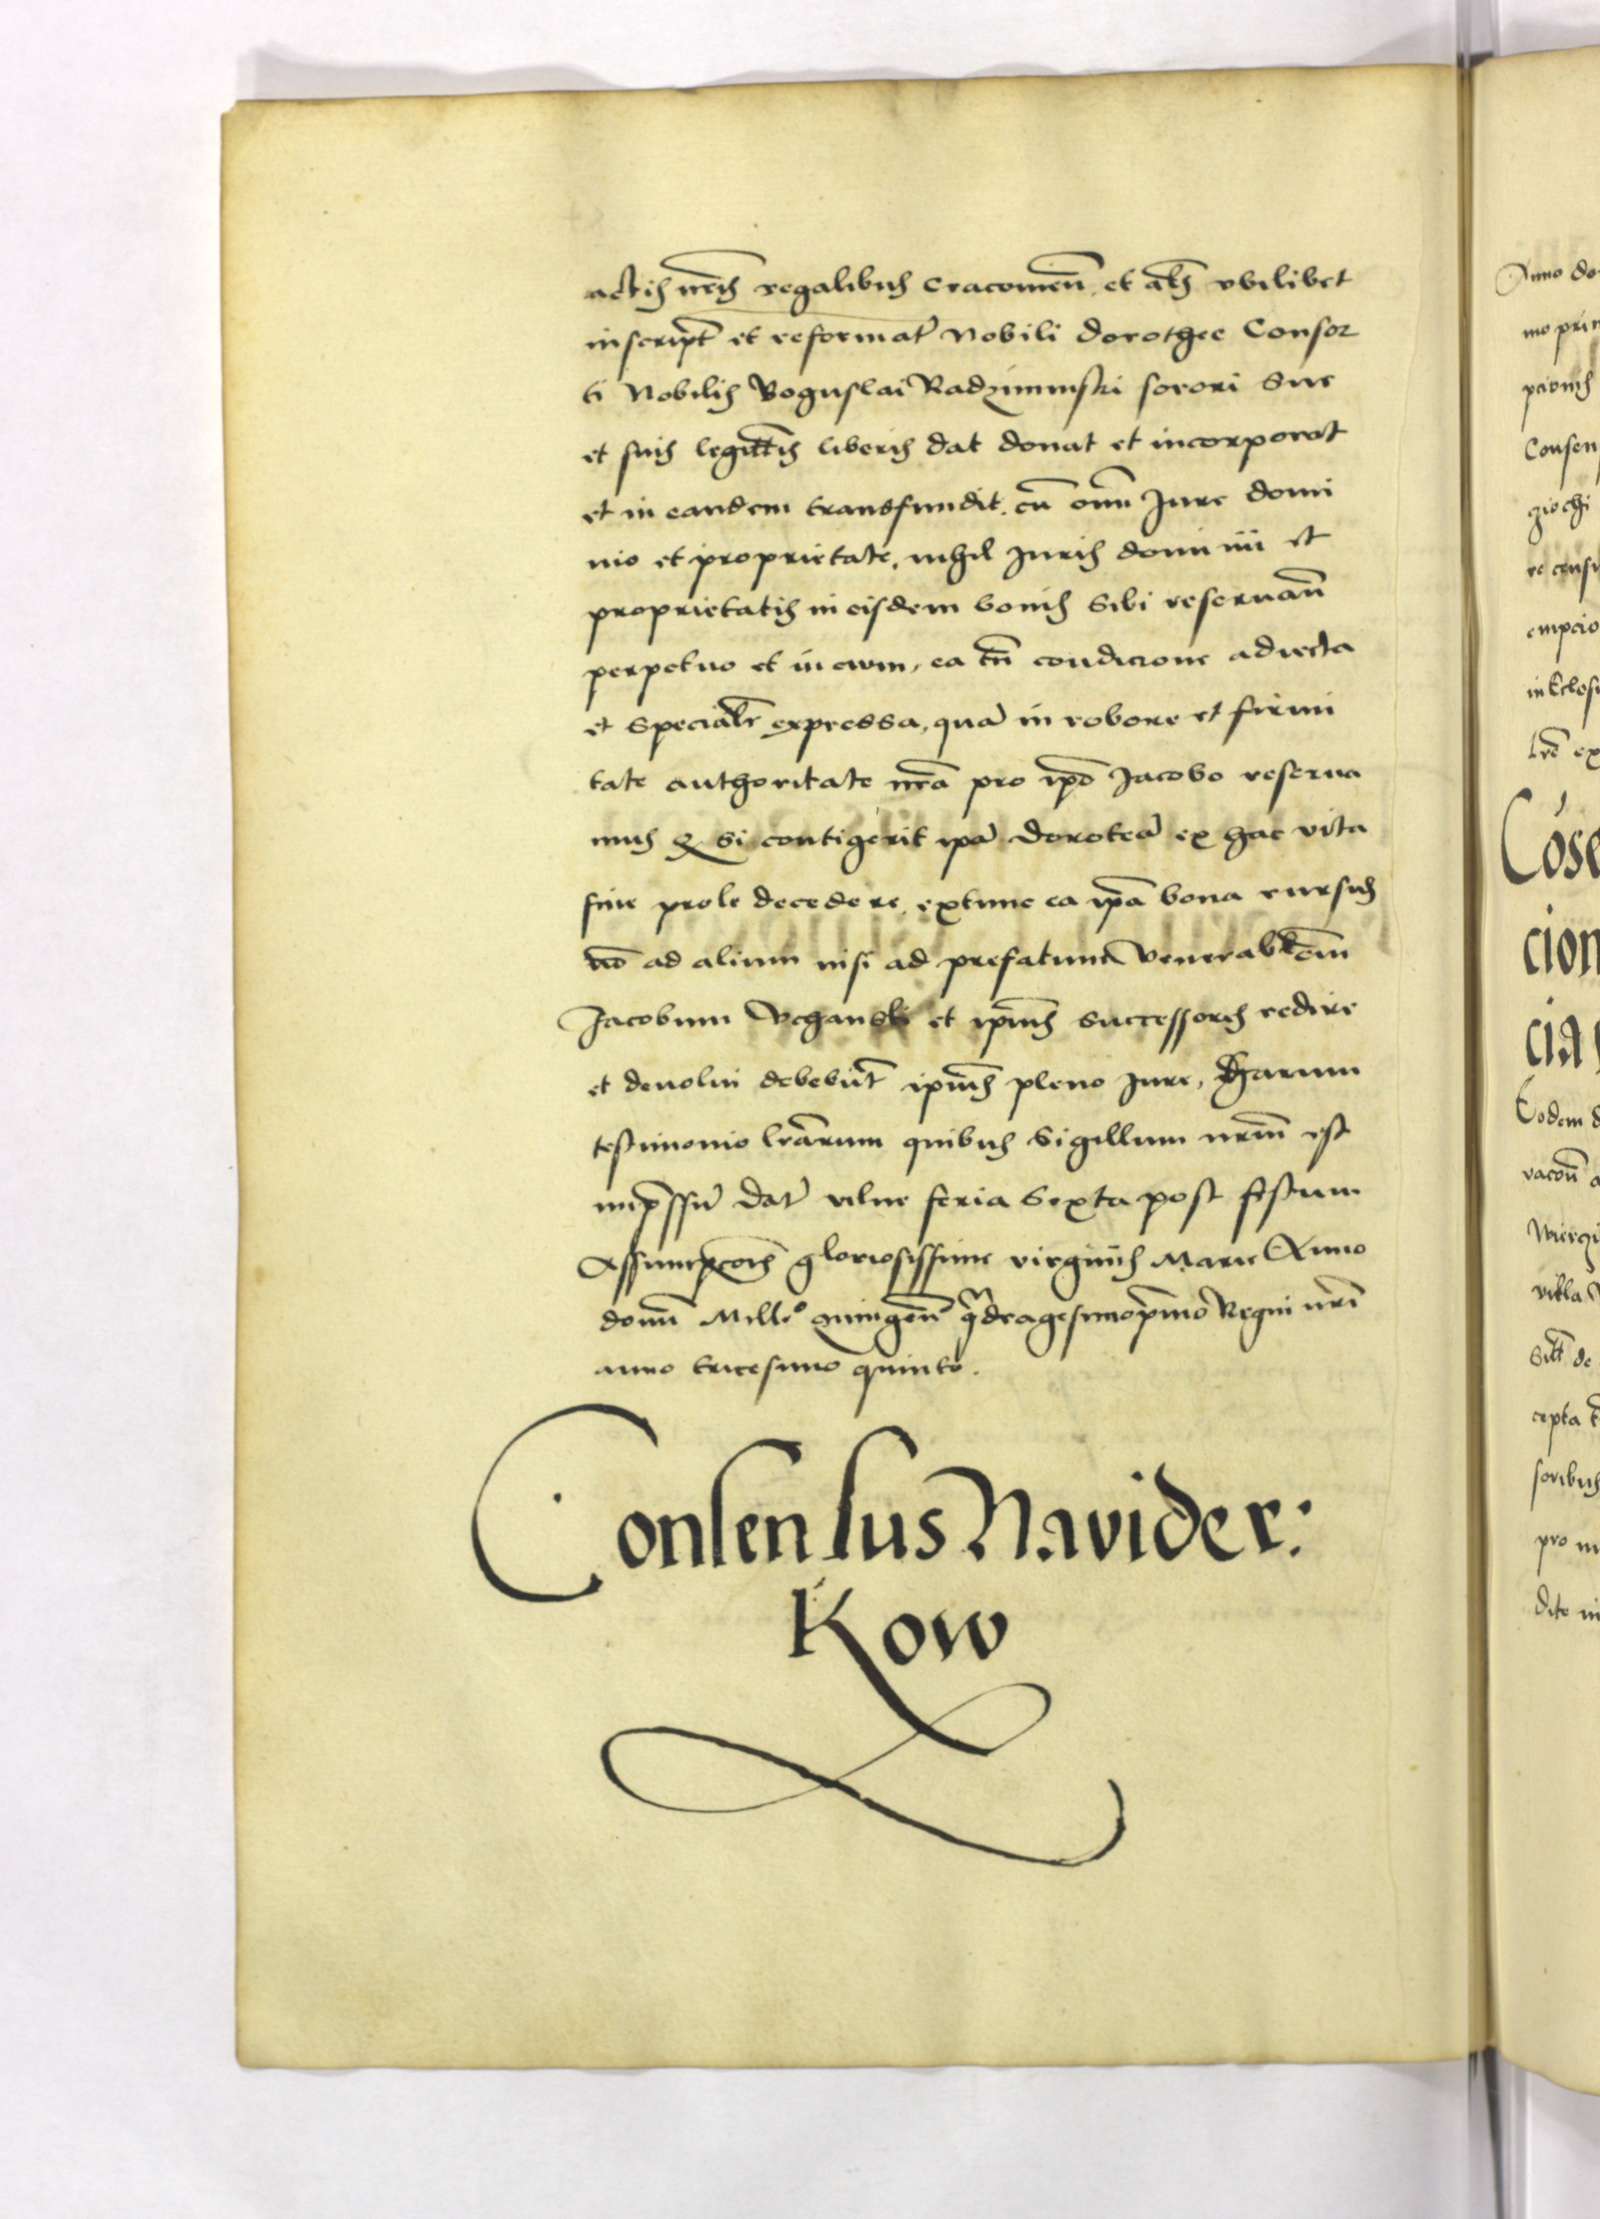 actis nr̃is regalibus Cracouieñ. et al̃s vbilibet
inscript̃ et reformat̃ Nobili dorothee Consor
ti Nobilis Boguslai Radziminski sorori Sue
et suis legitt̃is liberis dat donat et incorporat
et in eandem transfundit. cũ om̃i Jure domi
nio et proprietate. nihil Juris dominii et
proprietatis in eisdem bonis Sibi reseruañ
perpetuo et in ewm, ea tñ condicione adiecta
et Specialr̃ expressa, quã in robore et firmi
tate authoritate nr̃a pro ip̃o Jacobo reserua
mus Q Si contigerit ip̃ã Doroteã ex hac vita
sine prole decedere, extunc ea ip̃a bona rursus
nõ ad alium nisi ad prefatum Venerabilem
Jacobum Veganski et ip̃ius Successores redire
et deuolui debebũt ip̃ius pleno Jure, Harum
testimonio lr̃arum quibus Sigillum nr̃m est
imp̃ssũ dat̃ vilne feria Sexta post festum
Assumpc̃ois gloriosissime virginis Marie Anno
domĩ Mill̃o quingeñ q̃dragesimop̃mo Regni nr̃i
anno tricesimo quinto.
Consensus Navider:
Kow
Anno do
mo prim
pcionis
Consen
re censu
empcio
lr̃e ex
Cõse
cion
cia
Eodem d
vacoñ a
villa
de
cepta
soribus
pro
dito